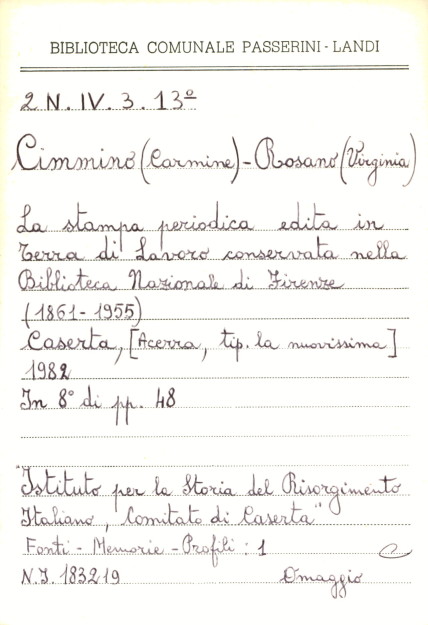 BIBLIOTECA COMUNALE PASSERINI - LANDI
2 N. IV. 3. 13º
Cimmino (Carmine) - Rosano (Virginia)
La stampa periodica edita in
Terra di Lavoro conservata nella
Biblioteca Nazionale di Firenze
(1861 - 1955)
Caserta, [Acerra, tip. la nuovissima]
1982
In 8° di pp. 48
"Istituto per la Storia del Risorgimento
Italiano, Comitato di Caserta"
Fonti - Memorie - Profili : 1
N.I. 183219 Omaggio